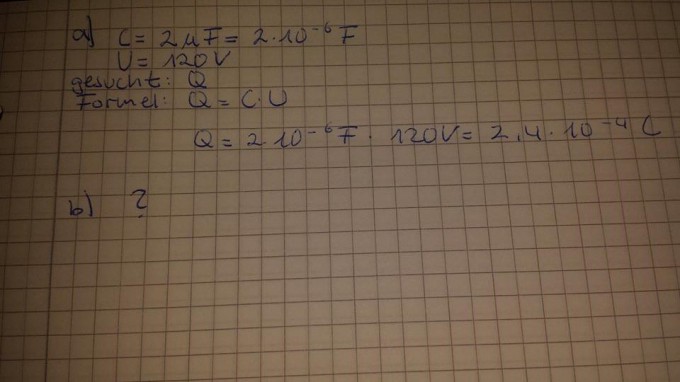 a) C = 2 µF = 2 · 10⁻⁶ F
U = 120 V
gesucht: Q
Formel: Q = C · U
Q = 2 · 10⁻⁶ F · 120 V = 2,4 · 10⁻⁴ C
b) ?